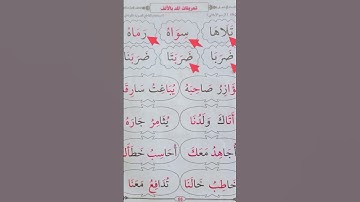 تدريبات المد بالألف
تَلَاهَا سِوَاهُ رَمَاهُ
ضَرَبَا ضَرَبَتَا ضَرَبْنَا
يُؤَازِرُ صَاحِبَهُ يُبَاغِتُ سَارِقًا
أَتَاكَ وَلَدُنَا يُثَامِرُ جَارَهُ
أُجَاهِدُ مَعَكَ أُحَاسِبُ خَطَأَكَ
خَاطِبُ خَالَنَا تُدَافِعُ مَعَنَا